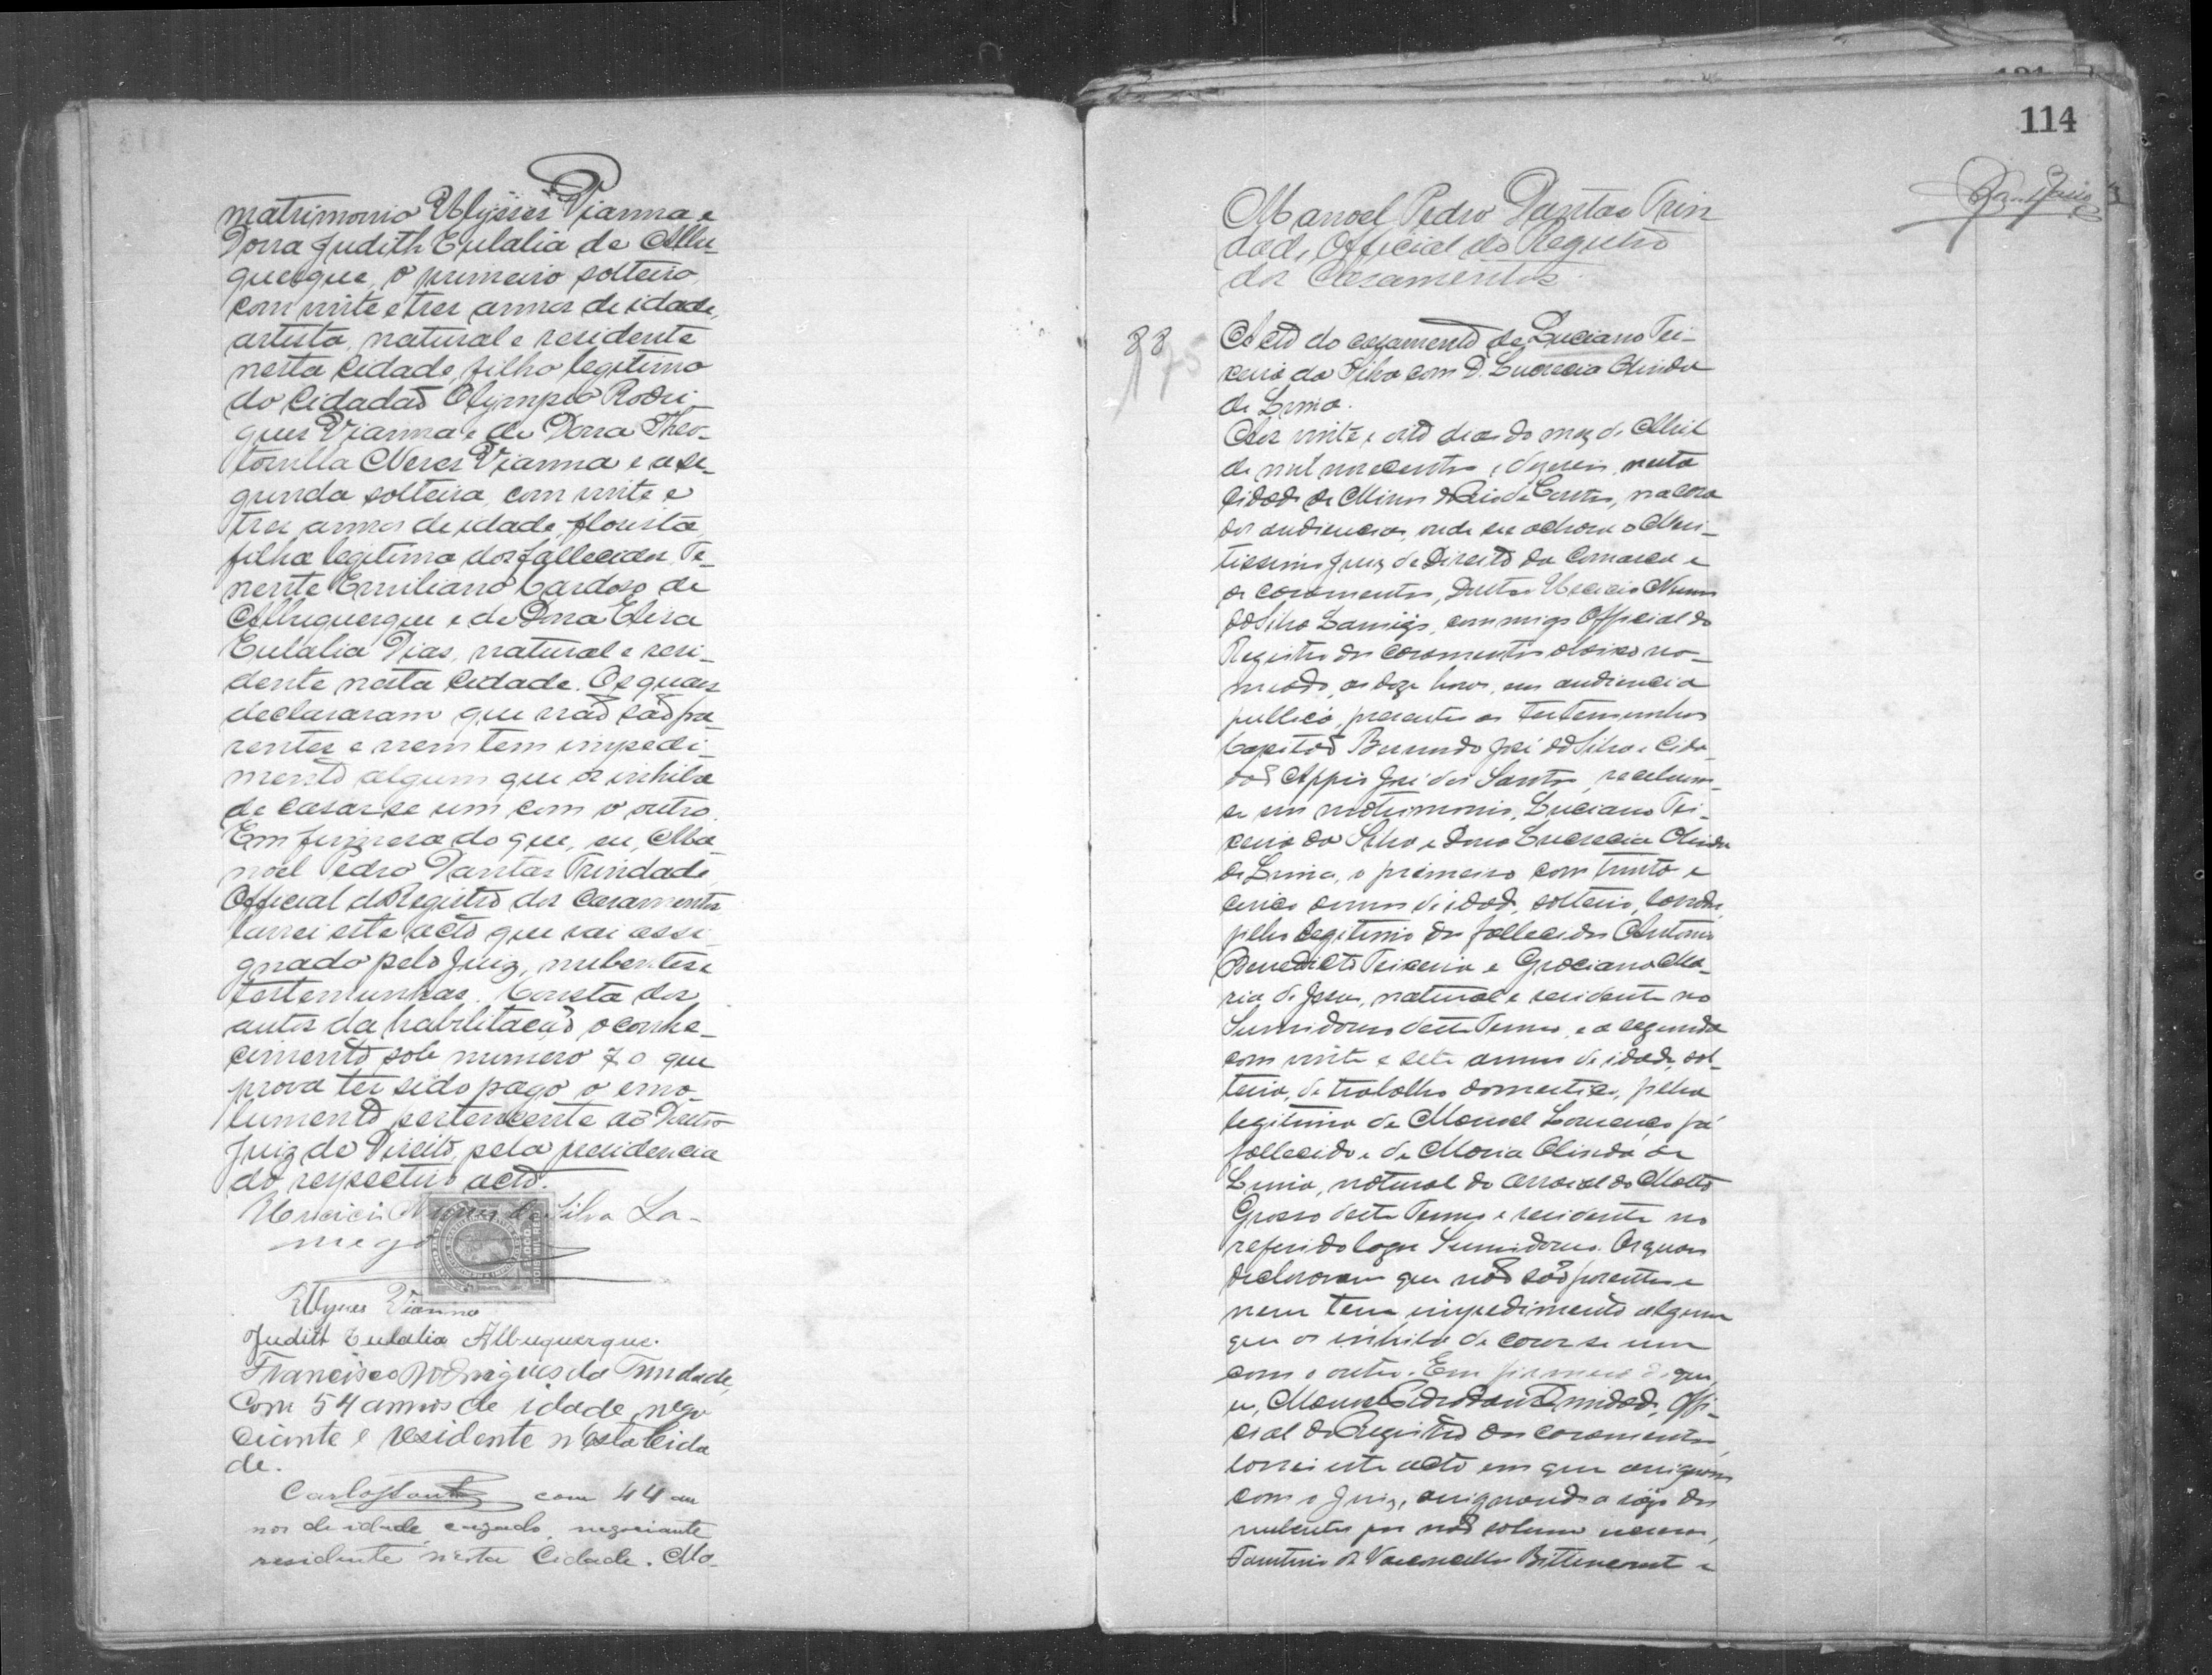 matrimonio Ulysses Vianna e
Dona Judith Eulalia de Albu-
querque, o primeiro solteiro,
com vinte e tres annos de idade,
artista, natural e residente
nesta Cidade, filho legitimo
do Cidadaõ Olympio Rodri-
gues Vianna e de Dona Theo-
tonilla Neres Vianna e a se-
gunda solteira, com vinte e
tres annos de idade, florista,
filha legitima dos fallecidos Te-
nente Emiliano Cardoso de
Albuquerque e de Dona Elisa
Eulalia Dias, natural e resi-
dente nesta Cidade. Os quaes
declararam que naõ saõ pa-
rentes e nem tem impedi-
mento algum que os inhiba
de casar-se um com o outro.
Em firmesa do que, eu, Ma-
noel Pedro Dantas Trindade,
Official do Registro dos Casamentos
lavrei este acto que vai assi-
gnado pelo Juiz, nubentes e
testemunhas. Consta dos
autos da habilitaçaõ o conhe-
cimento sob numero 70 que
prova ter sido pago o emo-
lumento pertencente ao Doutor
Juiz de Direito, pela presidencia
do respectivo acto.
Nunes da Silva La-
mego
DOIS MIL REIS
Ulysses Vianna
Judith Eulalia Albuquerque.
Francisco Rodrigues da Trindade,
Com 54 annos de idade, nego
ciante e residente n'esta Cida
de.
Carlos Santos com 44 an
nos de idade, cazado, negociante,
residente n'esta Cidade. Ma-
114
Manoel Pedro Dantas Trin
dade, Official do Registro
dos Casamentos.
33
175
Acto do casamento de Luciano Tei-
xeira da Silva com D. Lucrecia Olinda
de Lima.
Aos vinte e oito dias do mez de Abril
de mil novecentos e dezeseis, nesta
Cidade de Minas do Rio de Contas, na casa
das audiencias, onde se achava o Meri-
tissimo Juiz de Direito da Comarca e
os casamentos, Doutor Nunes
da Silva Lamego, commigo Official do
Registro dos Casamentos abaixo no-
meado, as doze horas, em audiencia
publica, presentes as testemunhas
Capitaõ José da Silva e Cida-
daõ José dos Santos, receberam-
se em matrimonio, Luciano Tei-
xeira da Silva e Dona Lucrecia Olinda
de Lima, o primeiro com trinta e
cinco annos de idade, solteiro,
filho legitimo dos fallecidos Antonio
Benedicto Teixeira e Graciana Ma-
ria de Jesus, natural e residente no
Sumidouro deste Termo, e a segunda
com vinte e sete annos de idade, sol-
teira, de trabalho domestico, filha
legitima de Manoel Lourenço já
fallecido e de Maria Olinda de
Lima, natural do arraial do Matto
Grosso deste Termo e residente no
referido logar Sumidouro. Os quaes
declararam que naõ saõ parentes e
nem tem impedimento algum
que os inhiba de casar-se um
com o outro. Em firmeza do que,
eu, Manoel Pedro Dantas Trindade, Offi-
cial do Registro dos Casamentos,
lavrei este acto em que assignam
com o Juiz, assignando a rogo dos
nubentes por naõ saberem escrever,
de Vasconcellos Bittencourt e